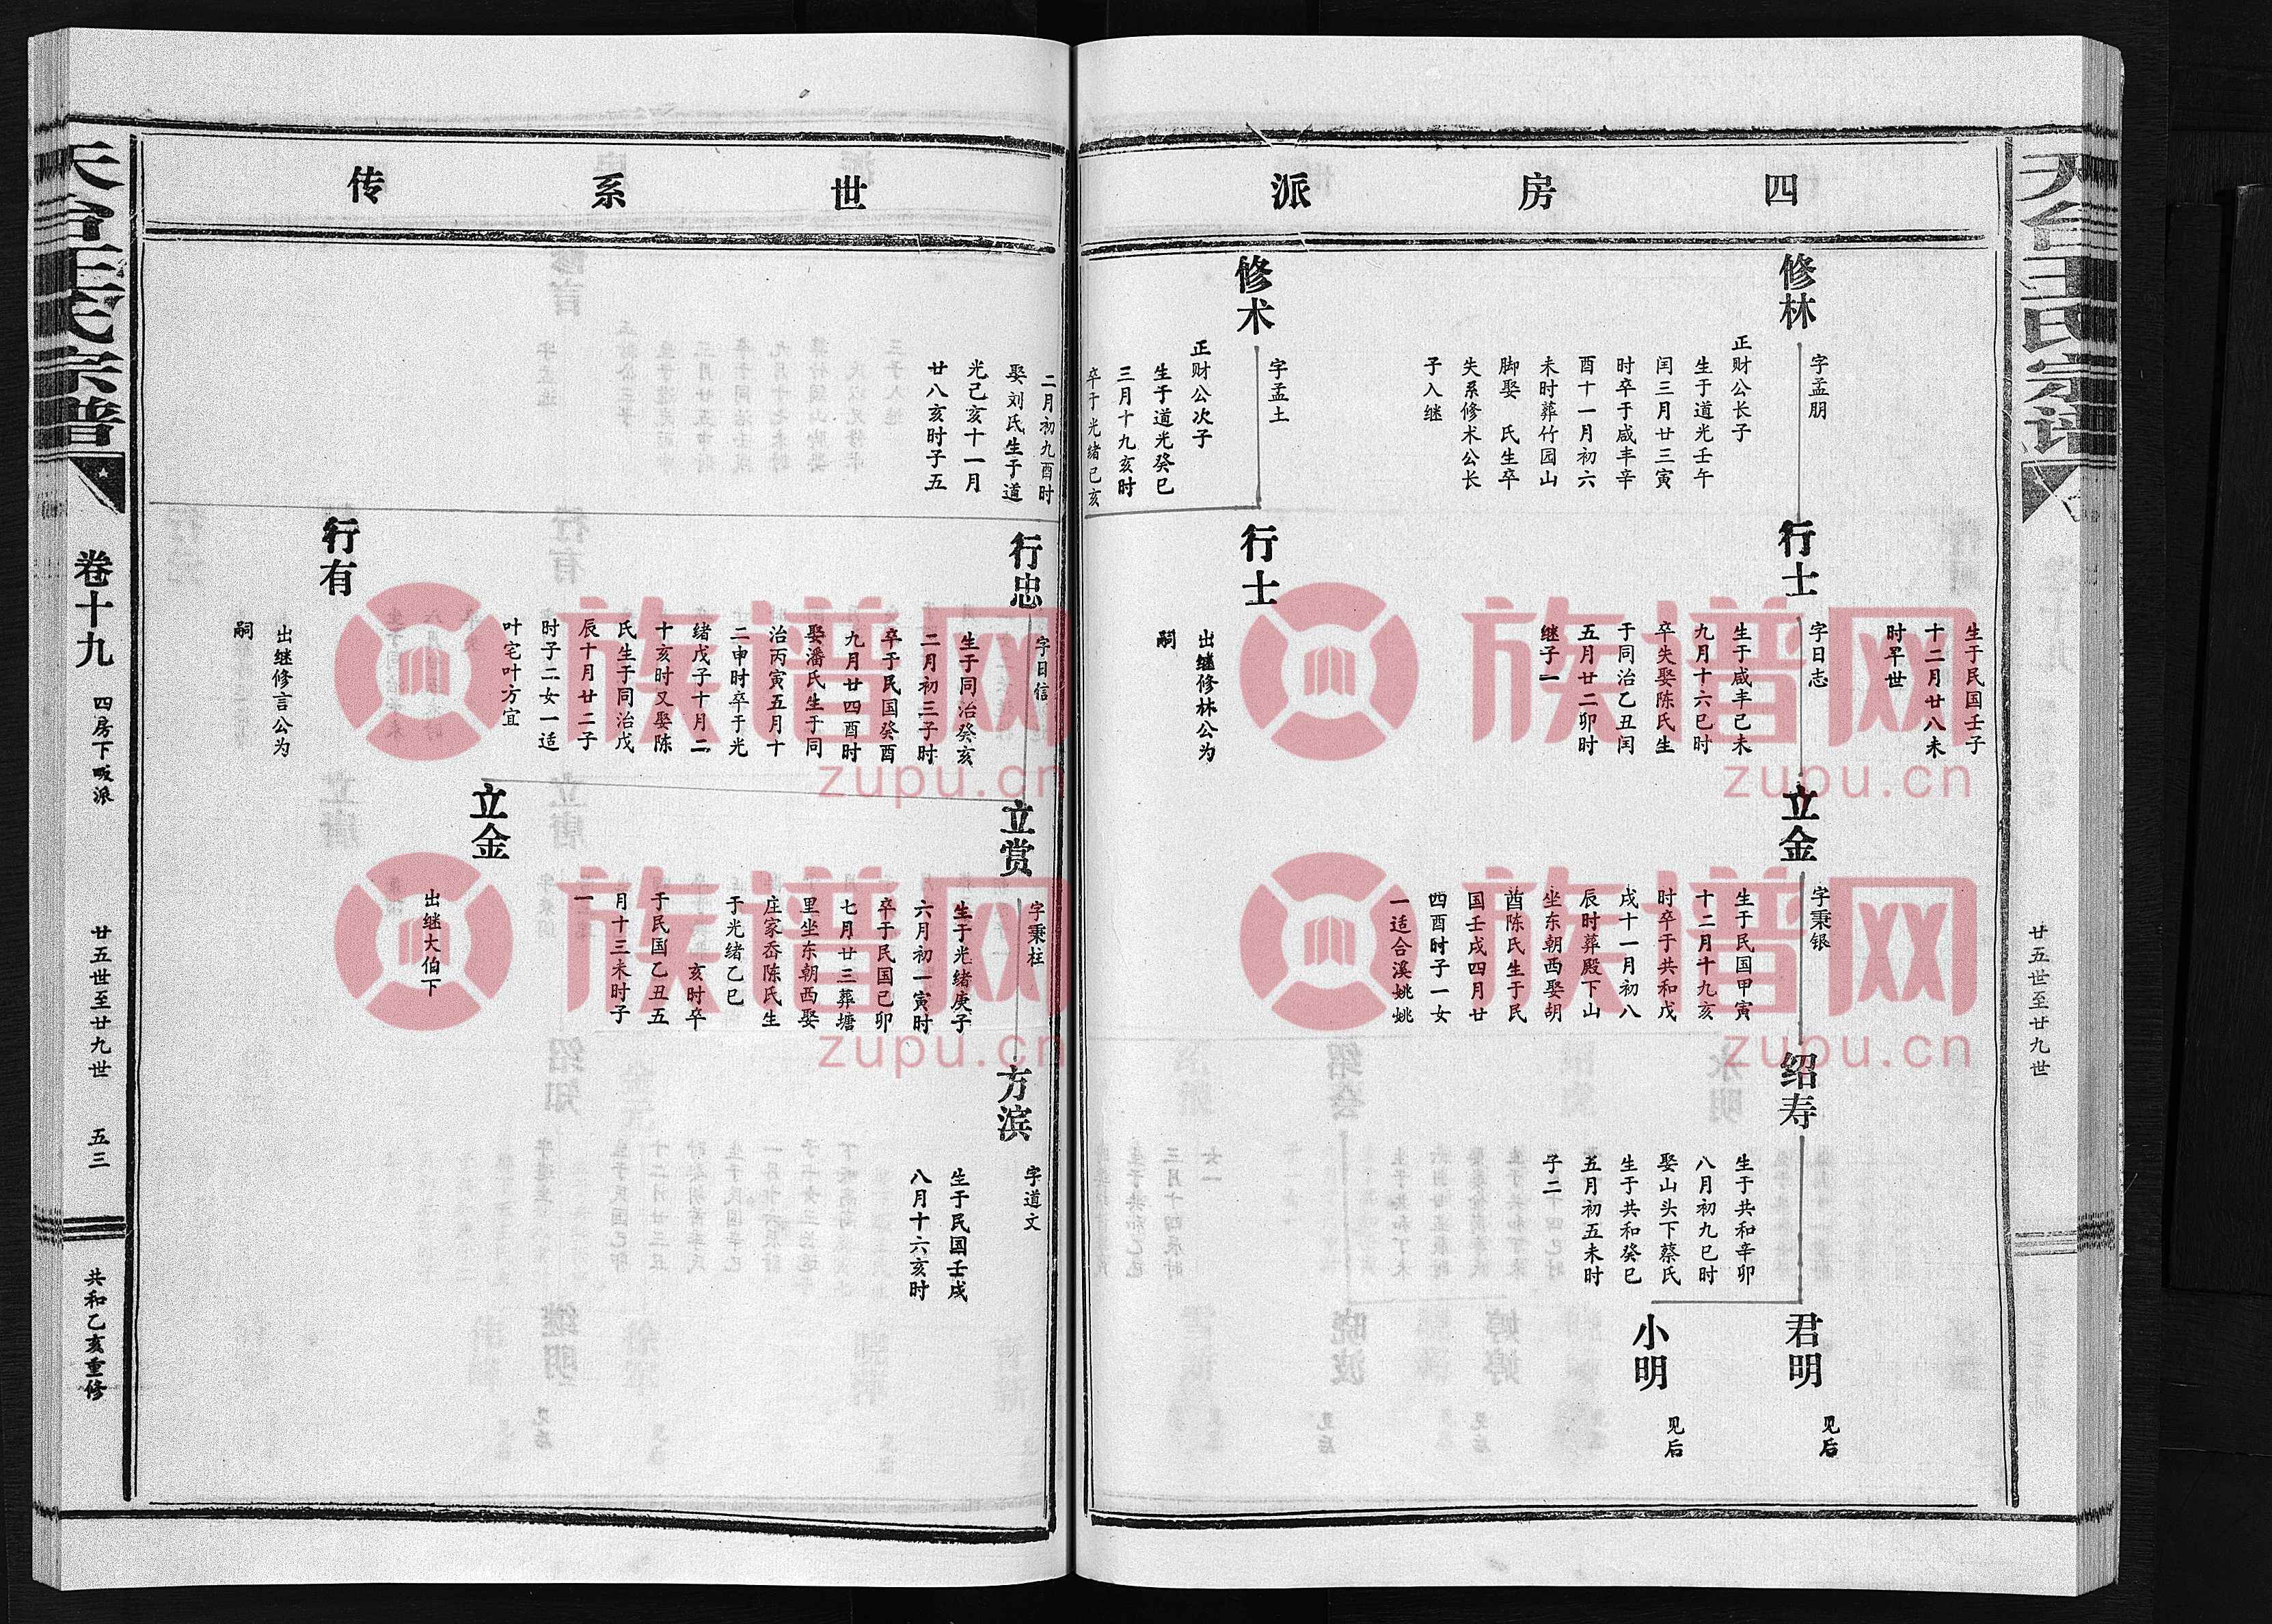 天台王氏宗谱
廿五世至廿九世
四房派
修林
字孟朋
正财公长子
生于道光壬午
闰三月廿三寅
时卒于咸丰辛
酉十一月初六
未时葬竹园山
脚娶 氏生卒
失系修术公长
子入继
修术
字孟土
正财公次子
生于道光癸巳
三月十九亥时
卒于光绪己亥
生于民国壬子
十二月廿八未
时早世
行士
字日志
生于咸丰己未
九月十六巳时
卒失娶陈氏生
于同治乙丑闰
五月廿二卯时
继子一
行士
出继修林公为
嗣
立金
字秉银
生于民国甲寅
十二月十九亥
时卒于共和戊
戌十一月初八
辰时葬殿下山
坐东朝西娶胡
酋陈氏生于民
国壬戌四月廿
四酉时子一女
一适合溪姚姚
绍寿
生于共和辛卯
八月初九巳时
娶山头下蔡氏
生于共和癸巳
五月初五未时
子二
君明
见后
小明
见后
世系传
二月初九酉时
娶刘氏生于道
光己亥十一月
廿八亥时子五
行忠
字日信
生于同治癸亥
二月初三子时
卒于民国癸酉
九月廿四酉时
娶潘氏生于同
治丙寅五月十
二申时卒于光
绪戊子十月二
十亥时又娶陈
氏生于同治戊
辰十月廿二子
时子二女一适
叶宅叶方宜
行有
出继修言公为
嗣
立赏
字秉柱
生于光绪庚子
六月初一寅时
卒于民国己卯
七月廿三葬塘
里坐东朝西娶
庄家岙陈氏生
于光绪乙巳
亥时卒
于民国乙丑五
月十三未时子
一
立金
出继大伯下
方滨
字道文
生于民国壬戌
八月十六亥时
天台王氏宗谱
卷十九
四房下畈派
廿五世至廿九世
五三
共和乙亥重修
族谱网
zupu.cn
族谱网
zupu.cn
族谱网
zupu.cn
族谱网
zupu.cn